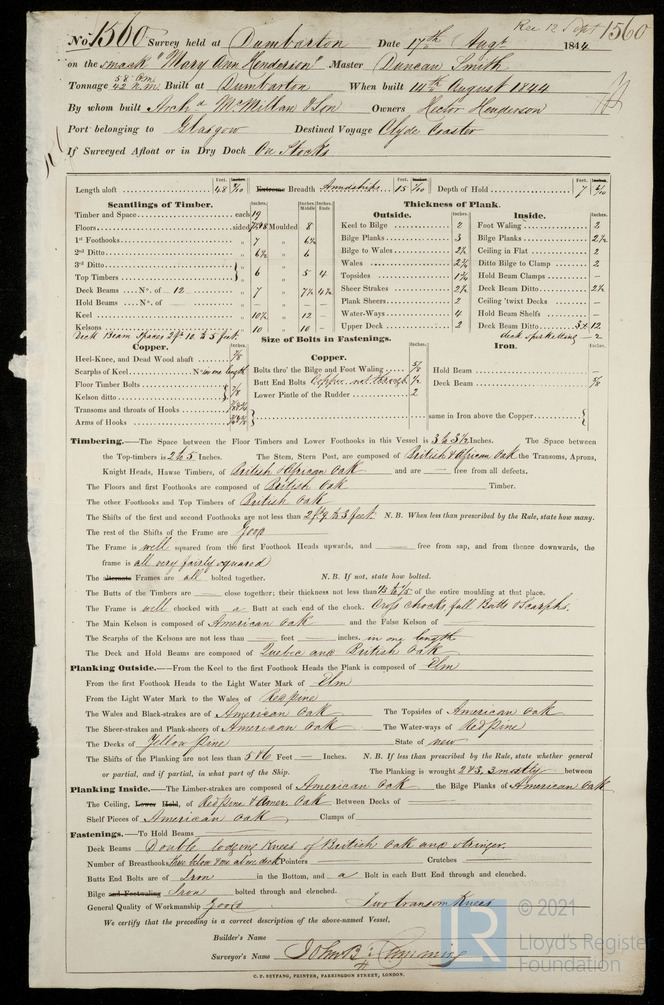 Rec 12 Sept 1560
No. 1560 Survey held at Dumbarton Date 17th Augt 1844
on the smack "Mary Ann Henderson" Master Duncan Smith
Tonnage 58 O.M. 42 N.M. Built at Dumbarton When built 14th August 1844
By whom built Archd McMillan & Son Owners Hector Henderson
Port belonging to Glasgow Destined Voyage Clyde Coaster
If Surveyed Afloat or in Dry Dock On Stocks
Feet. Inches. Feet. Inches. Feet. Inches.
Length aloft 48 Extreme Breadth Amidships 15 Depth of Hold 7
Scantlings of Timber. Thickness of Plank.
Inches. Inches. Middle Inches. Ends Outside. Inches. Inside. Inches.
Timber and Space each 19 Keel to Bilge 2 Foot Waling 2
Floors sided Moulded 8 Bilge Planks 3 Bilge Planks 2½
1st Foothooks „ 7 „ 6½ Bilge to Wales 2½ Ceiling in Flat 2
2nd Ditto „ 6½ „ 6 Wales Ditto Bilge to Clamp 2
3rd Ditto Topsides Hold Beam Clamps —
Top Timbers „ 6 „ 5 4 Sheer Strakes 2½ Deck Beam Ditto 2½
Deck Beams No. of 12 „ 7 „ 7½ 4½ Plank Sheers 2 Ceiling 'twixt Decks —
Hold Beams No. of — „ — „ — Water-Ways 4 Hold Beam Shelfs —
Keel „ 10½ „ 12 Upper Deck 2 Deck Beam Ditto 3 x 12
Kelsons „ 10 „ 10 deck spirketting — 2
Deck Beam Spaces 2ft 10 to 5 feet.
Size of Bolts in Fastenings.
Copper. Inches. Copper. Inches. Iron. Inches.
Heel-Knee, and Dead Wood abaft 7/8 Bolts thro' the Bilge and Foot Waling 5/8 Hold Beam —
Scarphs of Keel No in one length Butt End Bolts Copper not through ½ Deck Beam 5/8
Floor Timber Bolts Lower Pintle of the Rudder 2
Kelson ditto 7/8
Transoms and throats of Hooks same in Iron above the Copper
Arms of Hooks
Timbering.—The Space between the Floor Timbers and Lower Foothooks in this Vessel is 3 to 3½ Inches. The Space between
the Top-timbers is 2 to 5 Inches. The Stem, Stern Post, are composed of British & African Oak the Transoms, Aprons,
Knight Heads, Hawse Timbers, of British & African Oak and are — free from all defects.
The Floors and first Foothooks are composed of British Oak Timber.
The other Foothooks and Top Timbers of British Oak
The Shifts of the first and second Foothooks are not less than 2 ft 9 to 3 feet. N. B. When less than prescribed by the Rule, state how many.
The rest of the Shifts of the Frame are Good
The Frame is well squared from the first Foothook Heads upwards, and — free from sap, and from thence downwards, the
frame is all very fairly squared
The alternate Frames are all bolted together. N. B. If not, state how bolted.
The Butts of the Timbers are — close together; their thickness not less than of the entire moulding at that place.
The Frame is well chocked with a Butt at each end of the chock. Cross Chocks, full Butts & Scarphs.
The Main Kelson is composed of American Oak and the False Kelson of
The Scarphs of the Kelsons are not less than — feet — inches. in one length
The Deck and Hold Beams are composed of Quebec and British Oak
Planking Outside.—From the Keel to the first Foothook Heads the Plank is composed of Elm
From the first Foothook Heads to the Light Water Mark of Elm
From the Light Water Mark to the Wales of Red pine
The Wales and Black-strakes are of American Oak The Topsides of American Oak
The Sheer-strakes and Plank-sheers of American Oak The Water-ways of Red Pine
The Decks of Yellow Pine State of new
The Shifts of the Planking are not less than 5 & 6 Feet — Inches. N. B. If less than prescribed by the Rule, state whether general
or partial, and if partial, in what part of the Ship. The Planking is wrought 2 & 3, 3 mostly between
Planking Inside.—The Limber-strakes are composed of American Oak, the Bilge Planks of American Oak
The Ceiling, Lower Hold, of Red Pine & Amer. Oak Between Decks of —
Shelf Pieces of American Oak Clamps of —
Fastenings.—To Hold Beams
Deck Beams Double lodging Knees of British Oak and stringer.
Number of Breasthooks three below & one above deck Pointers — Crutches —
Butts End Bolts are of Iron in the Bottom, and a Bolt in each Butt End through and clenched.
Bilge and Footwaling Iron bolted through and clenched.
General Quality of Workmanship Good Two transom Knees
We certify that the preceding is a correct description of the above-named Vessel.
Builder's Name
Surveyor's Name John B. Cumming
C. F. SEYFANG, PRINTER, FARRINGDON STREET, LONDON.
LR © 2021
Lloyd's Register
Foundation